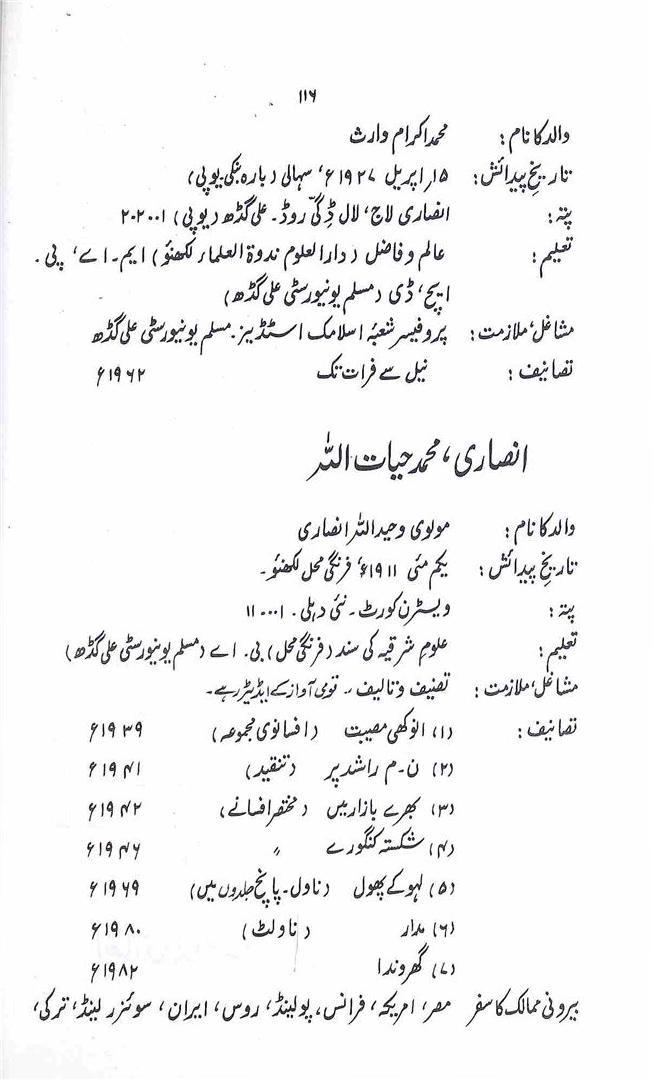 ۱۱۶
والد کا نام : محمد اکرام وارث
تاریخ پیدائش : ۱۵ر اپریل ۱۹۲۷ء، سہالی (بارہ بنکی یوپی)
پتہ : انصاری لاج، لال ڈگّی روڈ۔ علی گڈھ (یوپی) ۲۰۲۰۰۱
تعلیم : عالم و فاضل (دارالعلوم ندوۃ العلماء لکھنؤ) ایم۔ اے، پی۔
ایچ، ڈی (مسلم یونیورسٹی علی گڈھ)
مشاغل، ملازمت : پروفیسر شعبۂ اسلامک اسٹڈیز۔ مسلم یونیورسٹی علی گڈھ
تصانیف : نیل سے فرات تک ۱۹۶۲ء
انصاری، محمد حیات اللہ
والد کا نام : مولوی وحید اللہ انصاری
تاریخ پیدائش : یکم مئی ۱۹۱۱ء، فرنگی محل لکھنؤ۔
پتہ : ویسٹرن کورٹ۔ نئی دہلی۔ ۱۱۰۰۰۱
تعلیم : علوم شرقیہ کی سند (فرنگی محل) بی۔ اے (مسلم یونیورسٹی علی گڈھ)
مشاغل، ملازمت : تصنیف و تالیف۔ قومی آواز کے ایڈیٹر رہے۔
تصانیف : (۱) انوکھی مصیبت (افسانوی مجموعہ) ۱۹۳۹ء
(۲) ن۔م راشد پر (تنقید) ۱۹۴۱ء
(۳) بھرے بازار میں (مختصر افسانے) ۱۹۴۲ء
(۴) شکستہ کنگورے " ۱۹۴۶ء
(۵) لہو کے پھول (ناول۔ پانچ جلدوں میں) ۱۹۶۹ء
(۶) مدار (ناولٹ) ۱۹۸۰ء
(۷) گھروندا ۱۹۸۲ء
بیرونی ممالک کا سفر مصر، امریکہ، فرانس، پولینڈ، روس، ایران، سوئزر لینڈ، ترکی،